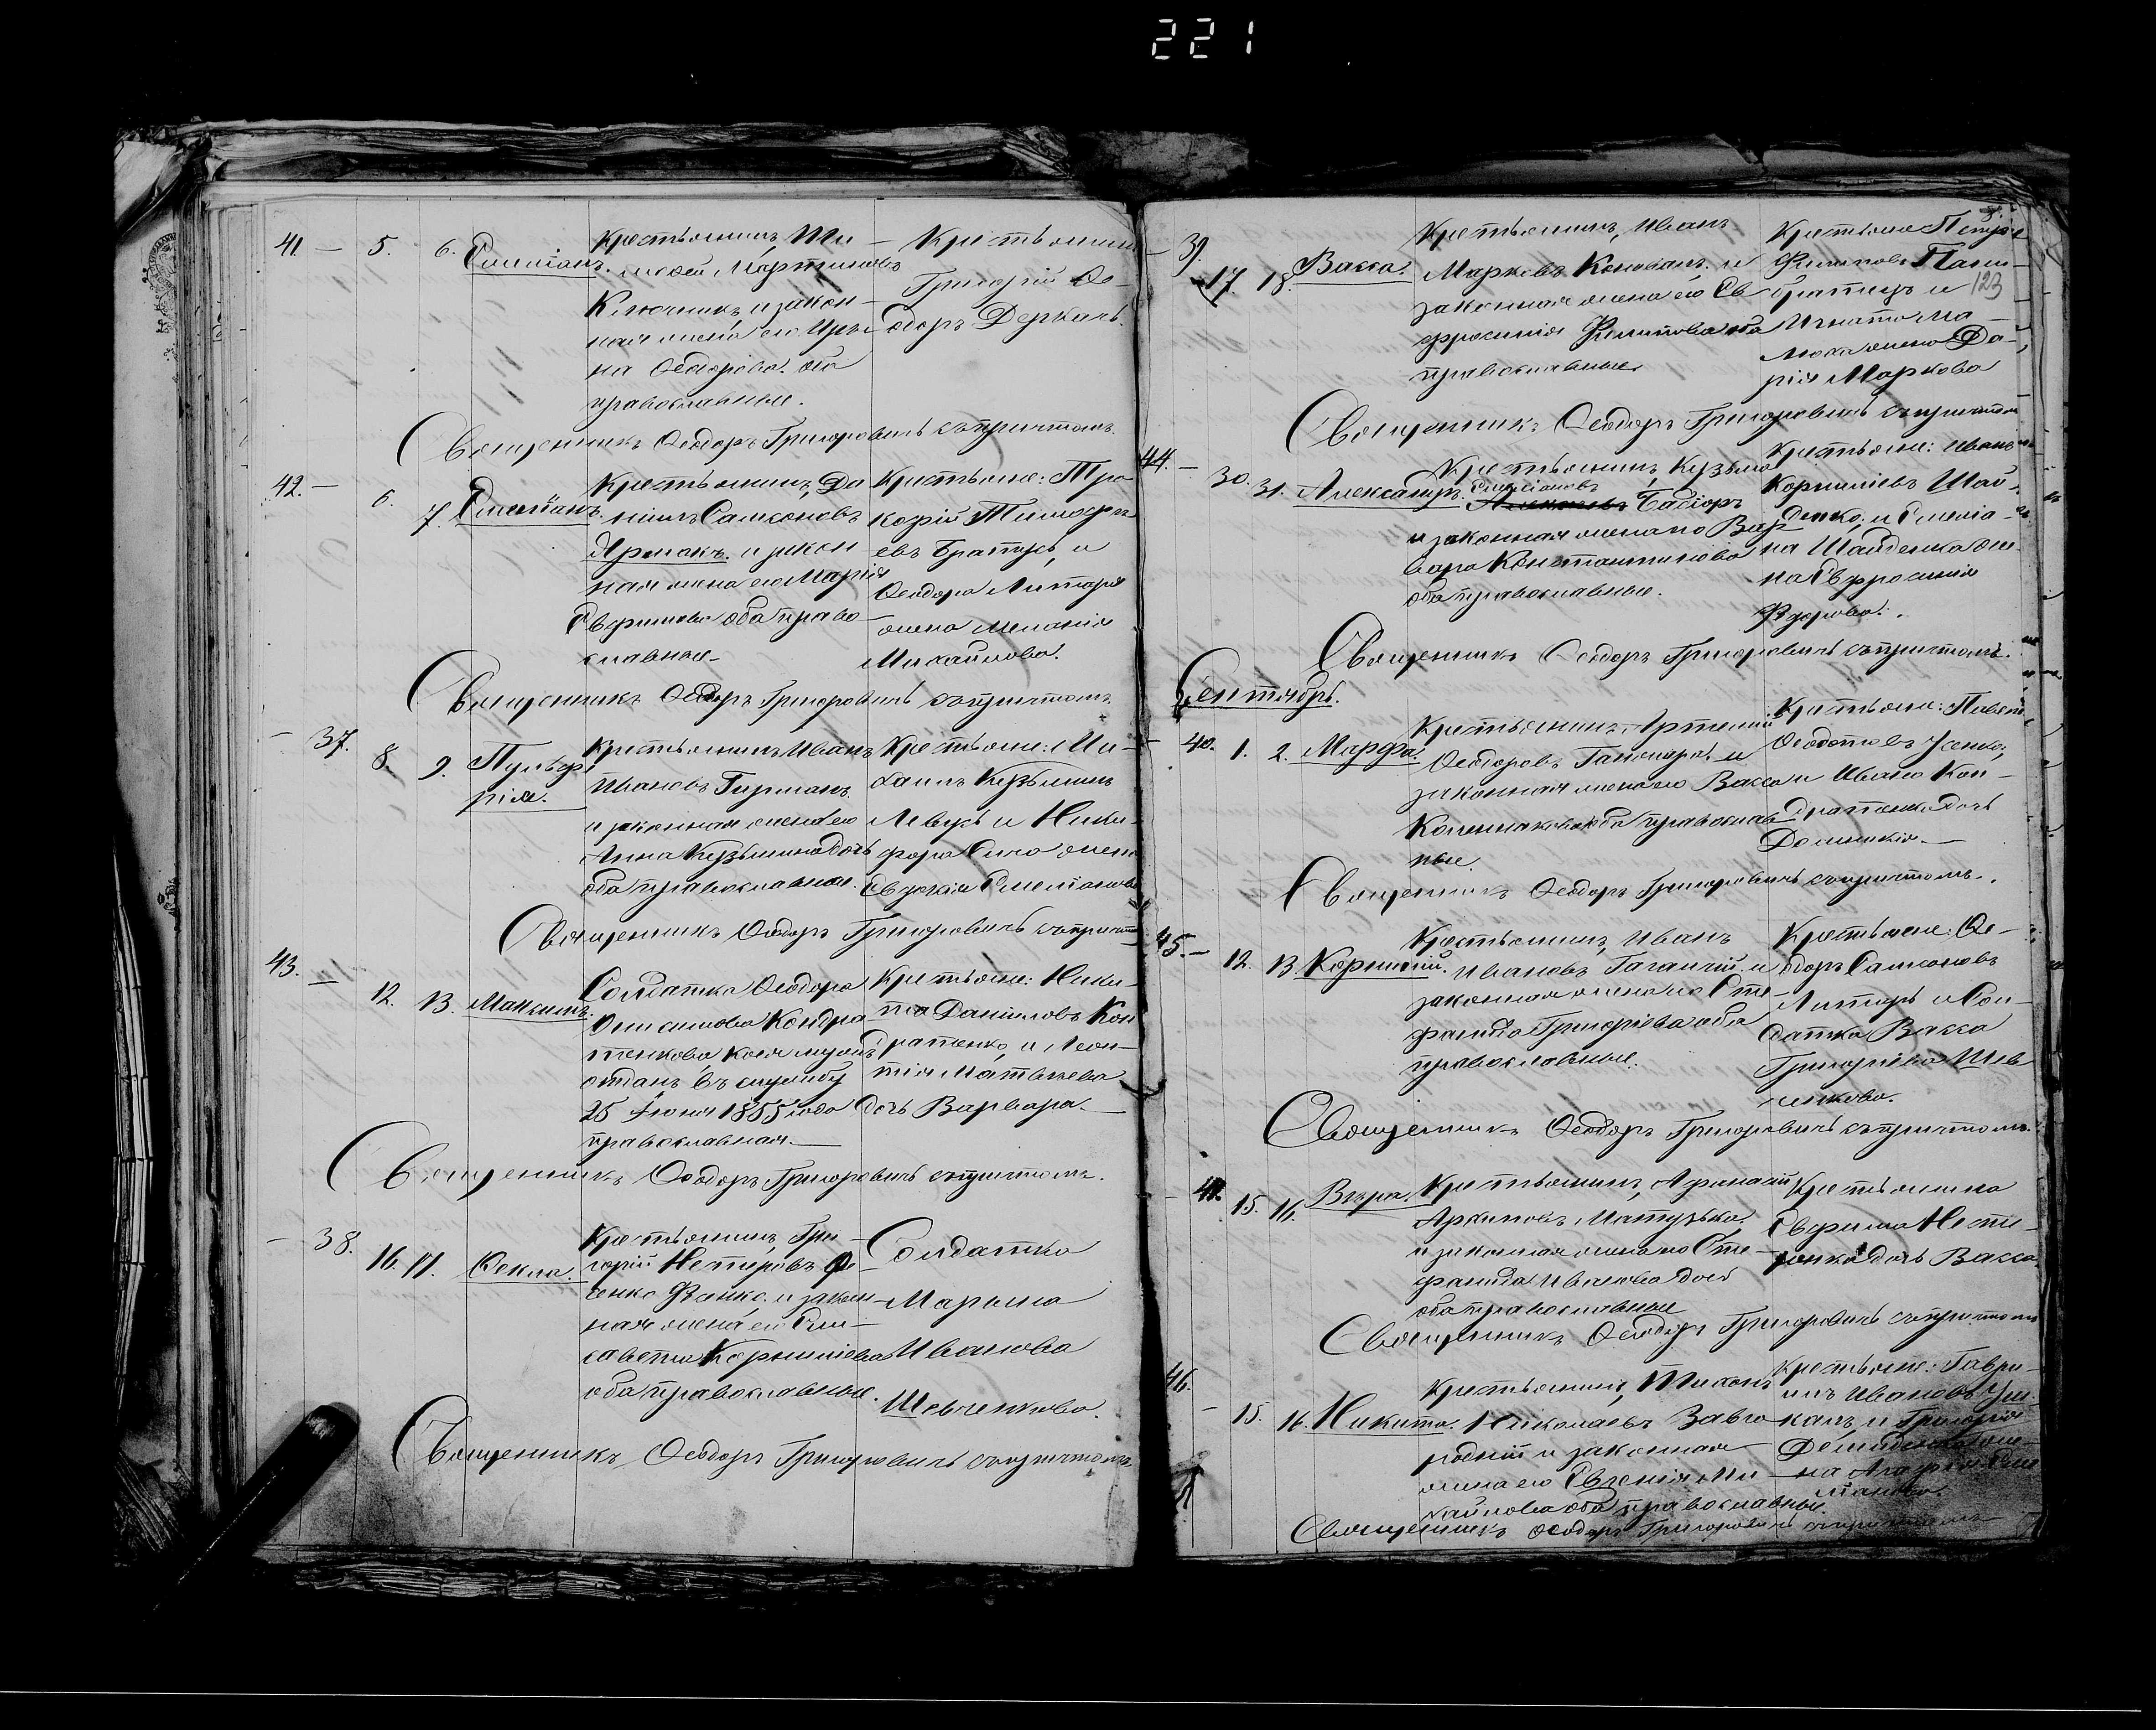 221
41. — 5. 6. Емеліанъ. Крестьянинъ, Ти-
мофей Мартиновъ
Ключникъ, и закон-
ная жена его Ири-
на Ѳеодорова. оба
православные.
Крестьянинъ
Григорій Ѳе-
одоръ Деркачь.
Священникъ Ѳеодоръ Григоровичь съ причтомъ.
42. — 6. 7. Емеліанъ. Крестьянинъ, Да
ніилъ Самсоновъ
Ярмакъ. и закон
ная жена его Марія
Ефимова оба право
славные.
Крестьяне: Про
кофій Тимофе
евъ Братусь, и
Ѳеодора Литаря
жена Меланія
Михайлова.
Священникъ Ѳеодоръ Григоровичь съ причтомъ.
— 37. 8. 9. Пульхе
рія. Крестьянинъ Иванъ
Ивановъ Гирманъ.
и законная жена его
Анна Кузьмина дочь
оба православные.
Крестьяне: Ми-
хаилъ Кузьминъ
Левусь и Ники-
фора жена
Евдокія Емеліанова
Священникъ Ѳеодоръ Григоровичь съ причтомъ
43. — 12. 13. Максимъ. Солдатка Ѳеодора
Онисимова Кондра
тенкова, коея мужъ
отданъ въ службу
25 Іюня 1855 года
православная.
Крестьяне: Ники-
та Даніиловъ Кон
дратенко, и Леон-
тія Матвѣева
дочь Варвара.
Священникъ Ѳеодоръ Григоровичь съ причтомъ.
— 38. 16. 17. Ѳекла. Крестьянинъ, Гри-
горій Нестеровъ
и закон-
ная жена его Ели-
савета Корниліева
оба православные.
Солдатка
Марьяна
Иванова
Шевченкова.
Священникъ Ѳеодоръ Григоровичь съ причтомъ
123
— 39. 17. 18. Васса. Крестьянинъ, Иванъ
Марковъ Коновалъ. и
законная жена его Ев
фросинія Филипова оба
православные.
Крестьяне Петръ
Филиповъ
и
Игната Ма-
люха жена Да-
рія Маркова
Священникъ Ѳеодоръ Григоровичь съ причтомъ
44. — 30. 31. Александръ. Крестьянинъ, Кузьма
Емеліановъ
Бабіоръ
и законная жена его Вар
вара Константинова
оба православные.
Крестьяне: Иванъ
Корниліевъ Шай-
денко, и Емеліа-
на Шайденка же-
на Евфросинія
Ѳедорова.
Священникъ Ѳеодоръ Григоровичь съ причтомъ.
Сентябрь.
— 40. 1. 2. Марфа. Крестьянинъ Артемій
Ѳеодоровъ Ганчаръ, и
законная жена его Васса
оба православ
ные.
Крестьяне: Павелъ
Ѳеодотовъ Усенко,
и Ивана Кон-
дратенка дочь
Домникія.
Священникъ Ѳеодоръ Григоровичь съ причтомъ.
45. — 12. 13. Корнилій. Крестьянинъ, Иванъ
Ивановъ и
законная жена его Сте-
фанида Григоріева оба
православные.
Крестьяне: Ѳе-
одоръ Самсоновъ
Литарь и Сол-
датка Васса
Григоріева Шев
ченкова.
Священникъ Ѳеодоръ Григоровичь съ причтомъ.
— 41. 15. 16. Вѣра. Крестьянинъ, Афанасій
Архиповъ Матузько,
и законная жена его Сте-
фанида Иванова дочь
оба православные
Крестьянина
Ефима Несте-
ренка дочь Васса
Священникъ Ѳеодоръ Григоровичь съ причтомъ
46. — 15. 16. Никита. Крестьянинъ, Тихонъ
Николаевъ Завго
родній и законная
жена его Евгенія Ми-
хайлова оба православные
Крестьяне: Гаври-
илъ Ивановъ
и Григорія
Демиденка же-
на Агафія Еме
ліанова.
Священникъ Ѳеодоръ Григоровичь съ причтомъ